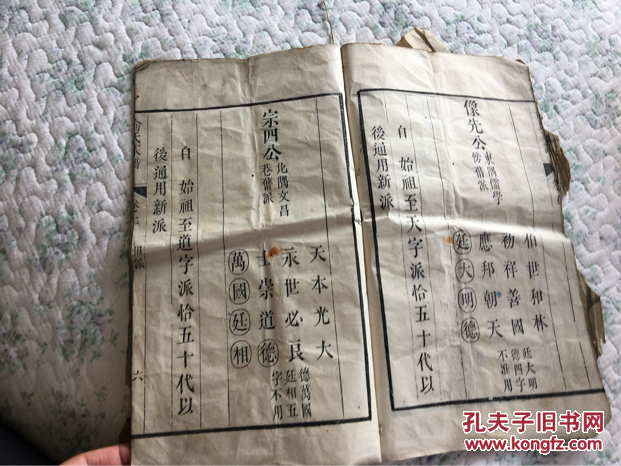 像先公
東隅儒學
伯世和林
初祥善國
應邦朝天
廷大明德
廷大明
德四字
不准用
自始祖至天字派恰五十代以
後通用新派
宗四公
北隅文昌
巷脩派
天本光大
永世必良
士崇道德
萬國廷相
德萬國
廷相五
字不用
自始祖至道字派恰五十代以
後通用新派
卷
派
六
孔夫子旧书网
www.kongfz.com